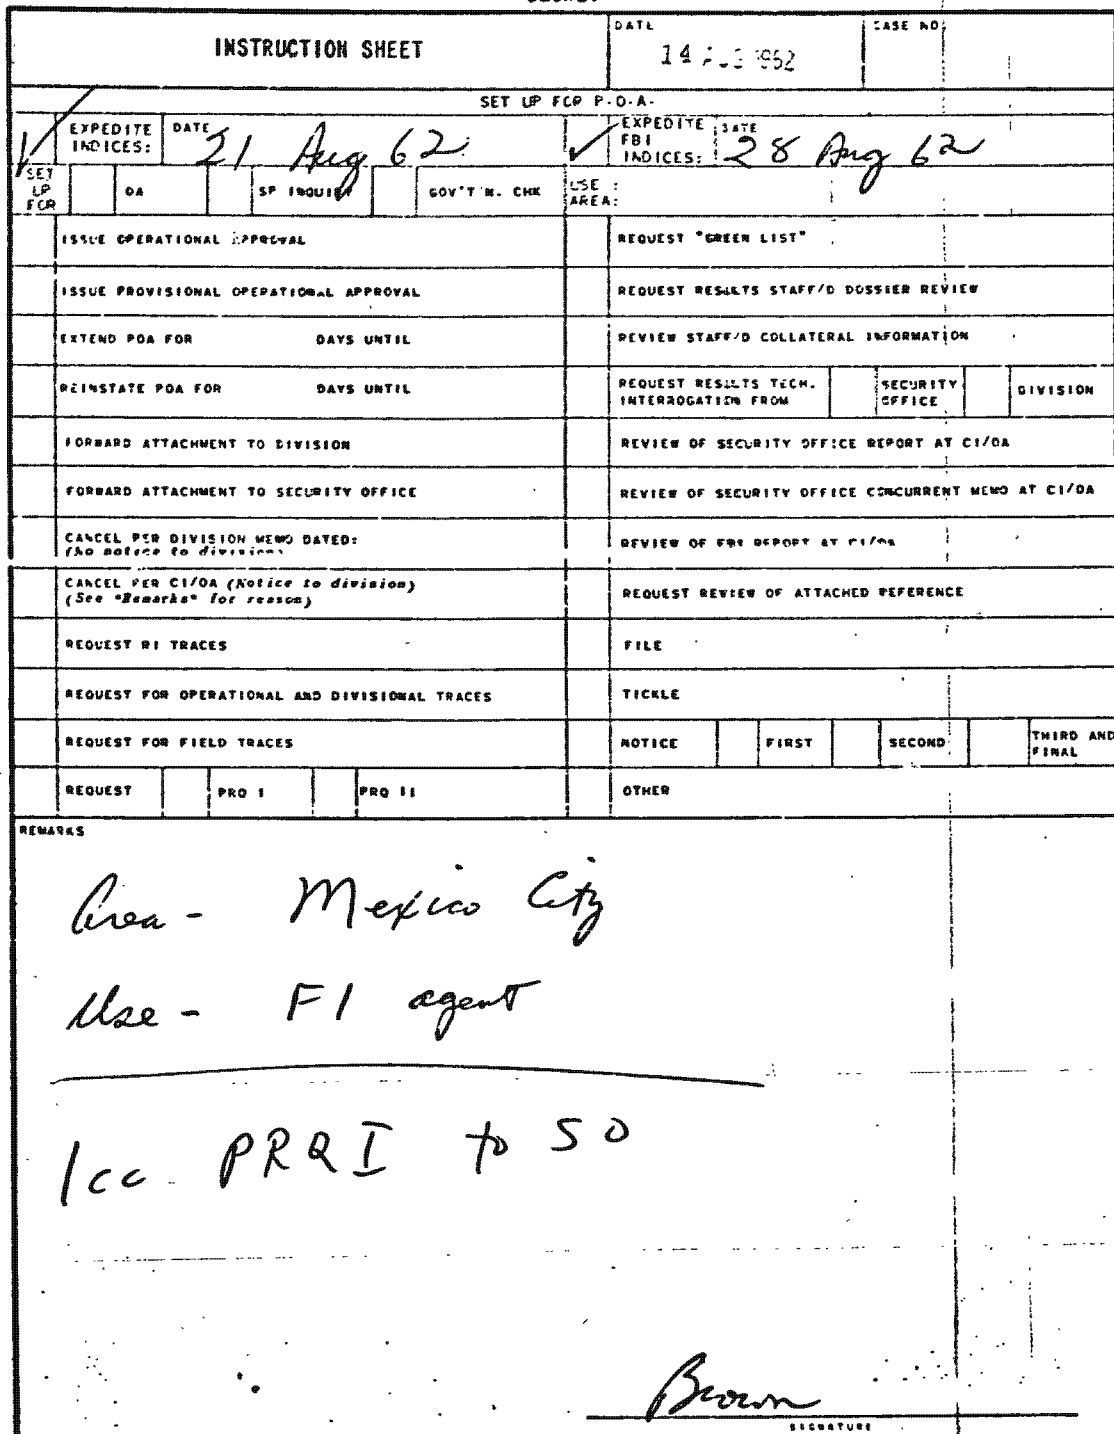 INSTRUCTION SHEET
DATE
14 AUG 1962
CASE NO.
SET UP FOR P-O-A-
EXPEDITE INDICES:
DATE
21 Aug 62
EXPEDITE FBI INDICES:
DATE
28 Aug 62
SET UP FOR
OA
SP INQUIRY
GOV'T N. CHK
USE :
AREA:
ISSUE OPERATIONAL APPROVAL
REQUEST "GREEN LIST"
ISSUE PROVISIONAL OPERATIONAL APPROVAL
REQUEST RESULTS STAFF/D DOSSIER REVIEW
EXTEND POA FOR DAYS UNTIL
REVIEW STAFF/D COLLATERAL INFORMATION
REINSTATE POA FOR DAYS UNTIL
REQUEST RESULTS TECH. INTERROGATION FROM
SECURITY OFFICE
DIVISION
FORWARD ATTACHMENT TO DIVISION
REVIEW OF SECURITY OFFICE REPORT AT CI/OA
FORWARD ATTACHMENT TO SECURITY OFFICE
REVIEW OF SECURITY OFFICE CONCURRENT MEMO AT CI/OA
CANCEL PER DIVISION MEMO DATED:
(No notice to division)
REVIEW OF FBI REPORT AT CI/OA
CANCEL PER CI/OA (Notice to division)
(See "Remarks" for reason)
REQUEST REVIEW OF ATTACHED REFERENCE
REQUEST RI TRACES
FILE
REQUEST FOR OPERATIONAL AND DIVISIONAL TRACES
TICKLE
REQUEST FOR FIELD TRACES
NOTICE
FIRST
SECOND
THIRD AND FINAL
REQUEST
PRQ I
PRQ II
OTHER
REMARKS
Area - Mexico City
Use - FI agent
1cc PRQ I to SO
Brown
SIGNATURE